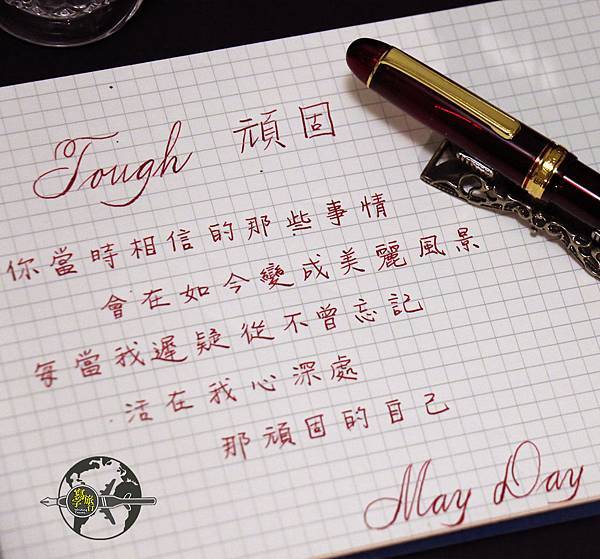 Tough 頑固
你當時相信的那些事情
會在如今變成美麗風景
每當我遲疑從不曾忘記
活在我心深處
那頑固的自己
May Day